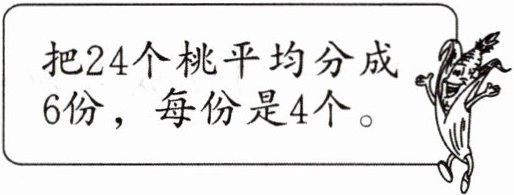 把24个桃平均分成
6份，每份是4个。